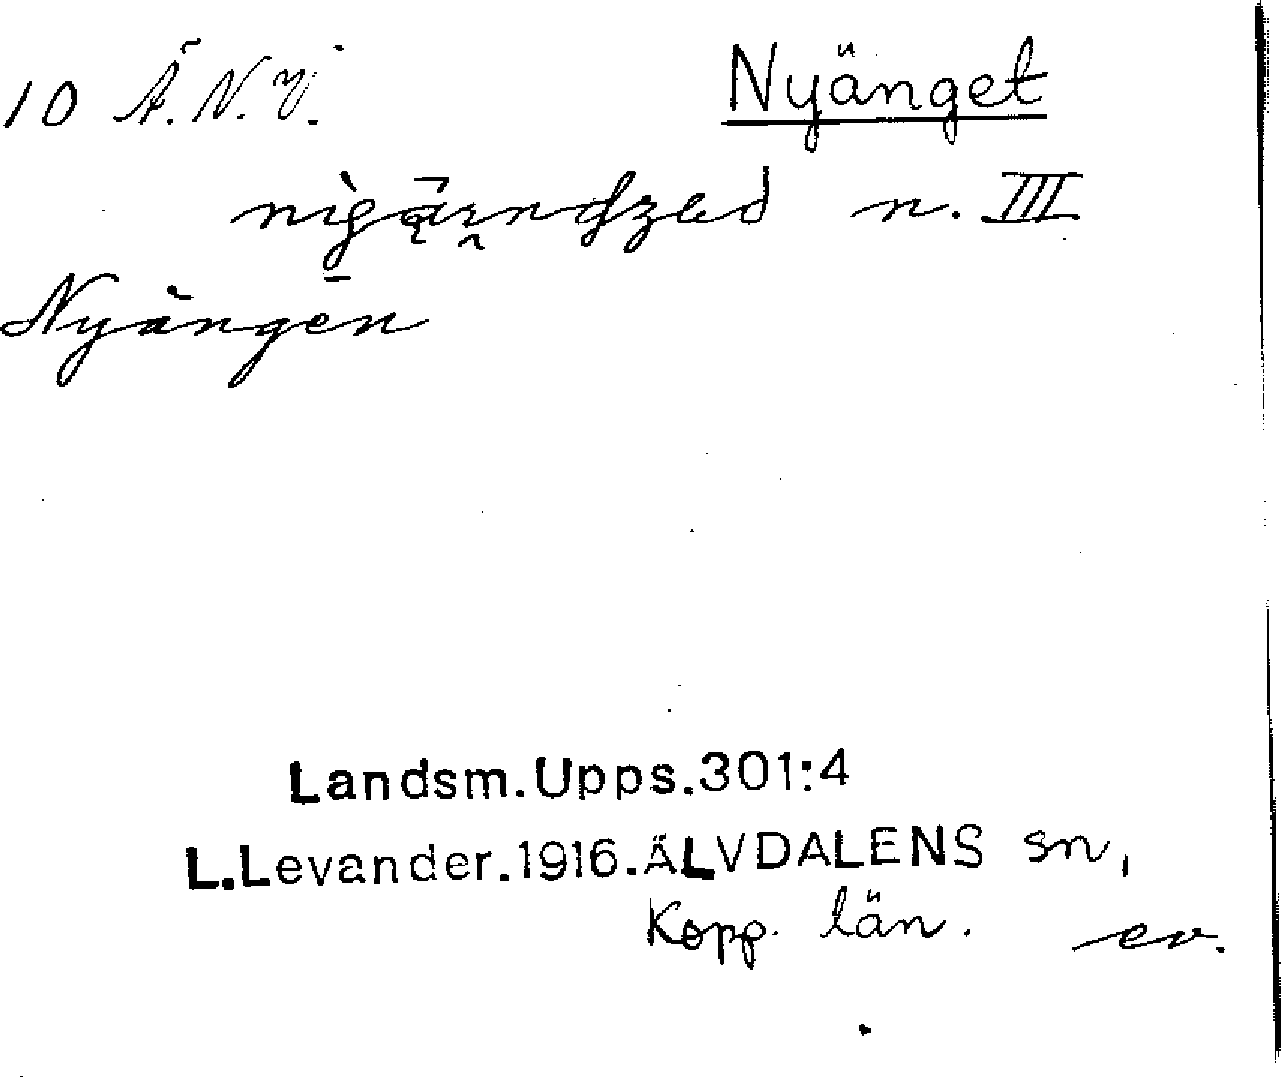 10 Ä. N. V. Nyänget
n. III
Nyängen
Landsm.Upps.301:4
L.Levander.1916.ÄLVDALENS sn,
Kopp. län. ev.